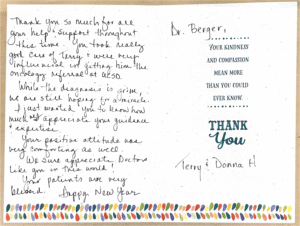 Thank you so much for all
your help & support throughout
this time. You took really
good care of Terry & were very
influential in getting him the
oncology referral at UCSD.
While the diagnosis is grim,
we are still hoping for a miracle.
I just wanted you to know how
much we appreciate your guidance
& expertise.
Your positive attitude was
very comforting as well.
We sure appreciate Doctors
like you in this world!
Your patients are very
blessed. Happy New Year
Dr. Berger,
YOUR KINDNESS
AND COMPASSION
MEAN MORE
THAN YOU COULD
EVER KNOW
THANK
You
Terry & Donna H